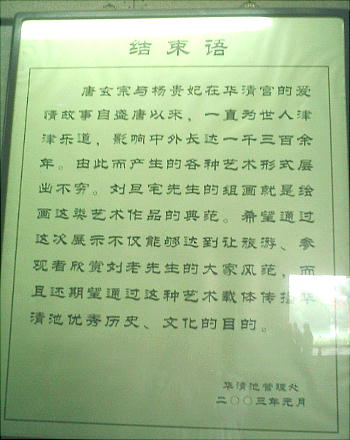 结束语
唐玄宗与杨贵妃在华清宫的爱
情故事自盛唐以来，一直为世人津
津乐道，影响中外长达一千三百余
年。由此而产生的各种艺术形式层
出不穷。刘旦宅先生的组画就是绘
画这类艺术作品的典范。希望通过
这次展示不仅能够达到让旅游、参
观者欣赏刘老先生的大家风范，而
且还期望通过这种艺术载体传播华
清池优秀历史、文化的目的。
华清池管理处
二〇〇三年元月